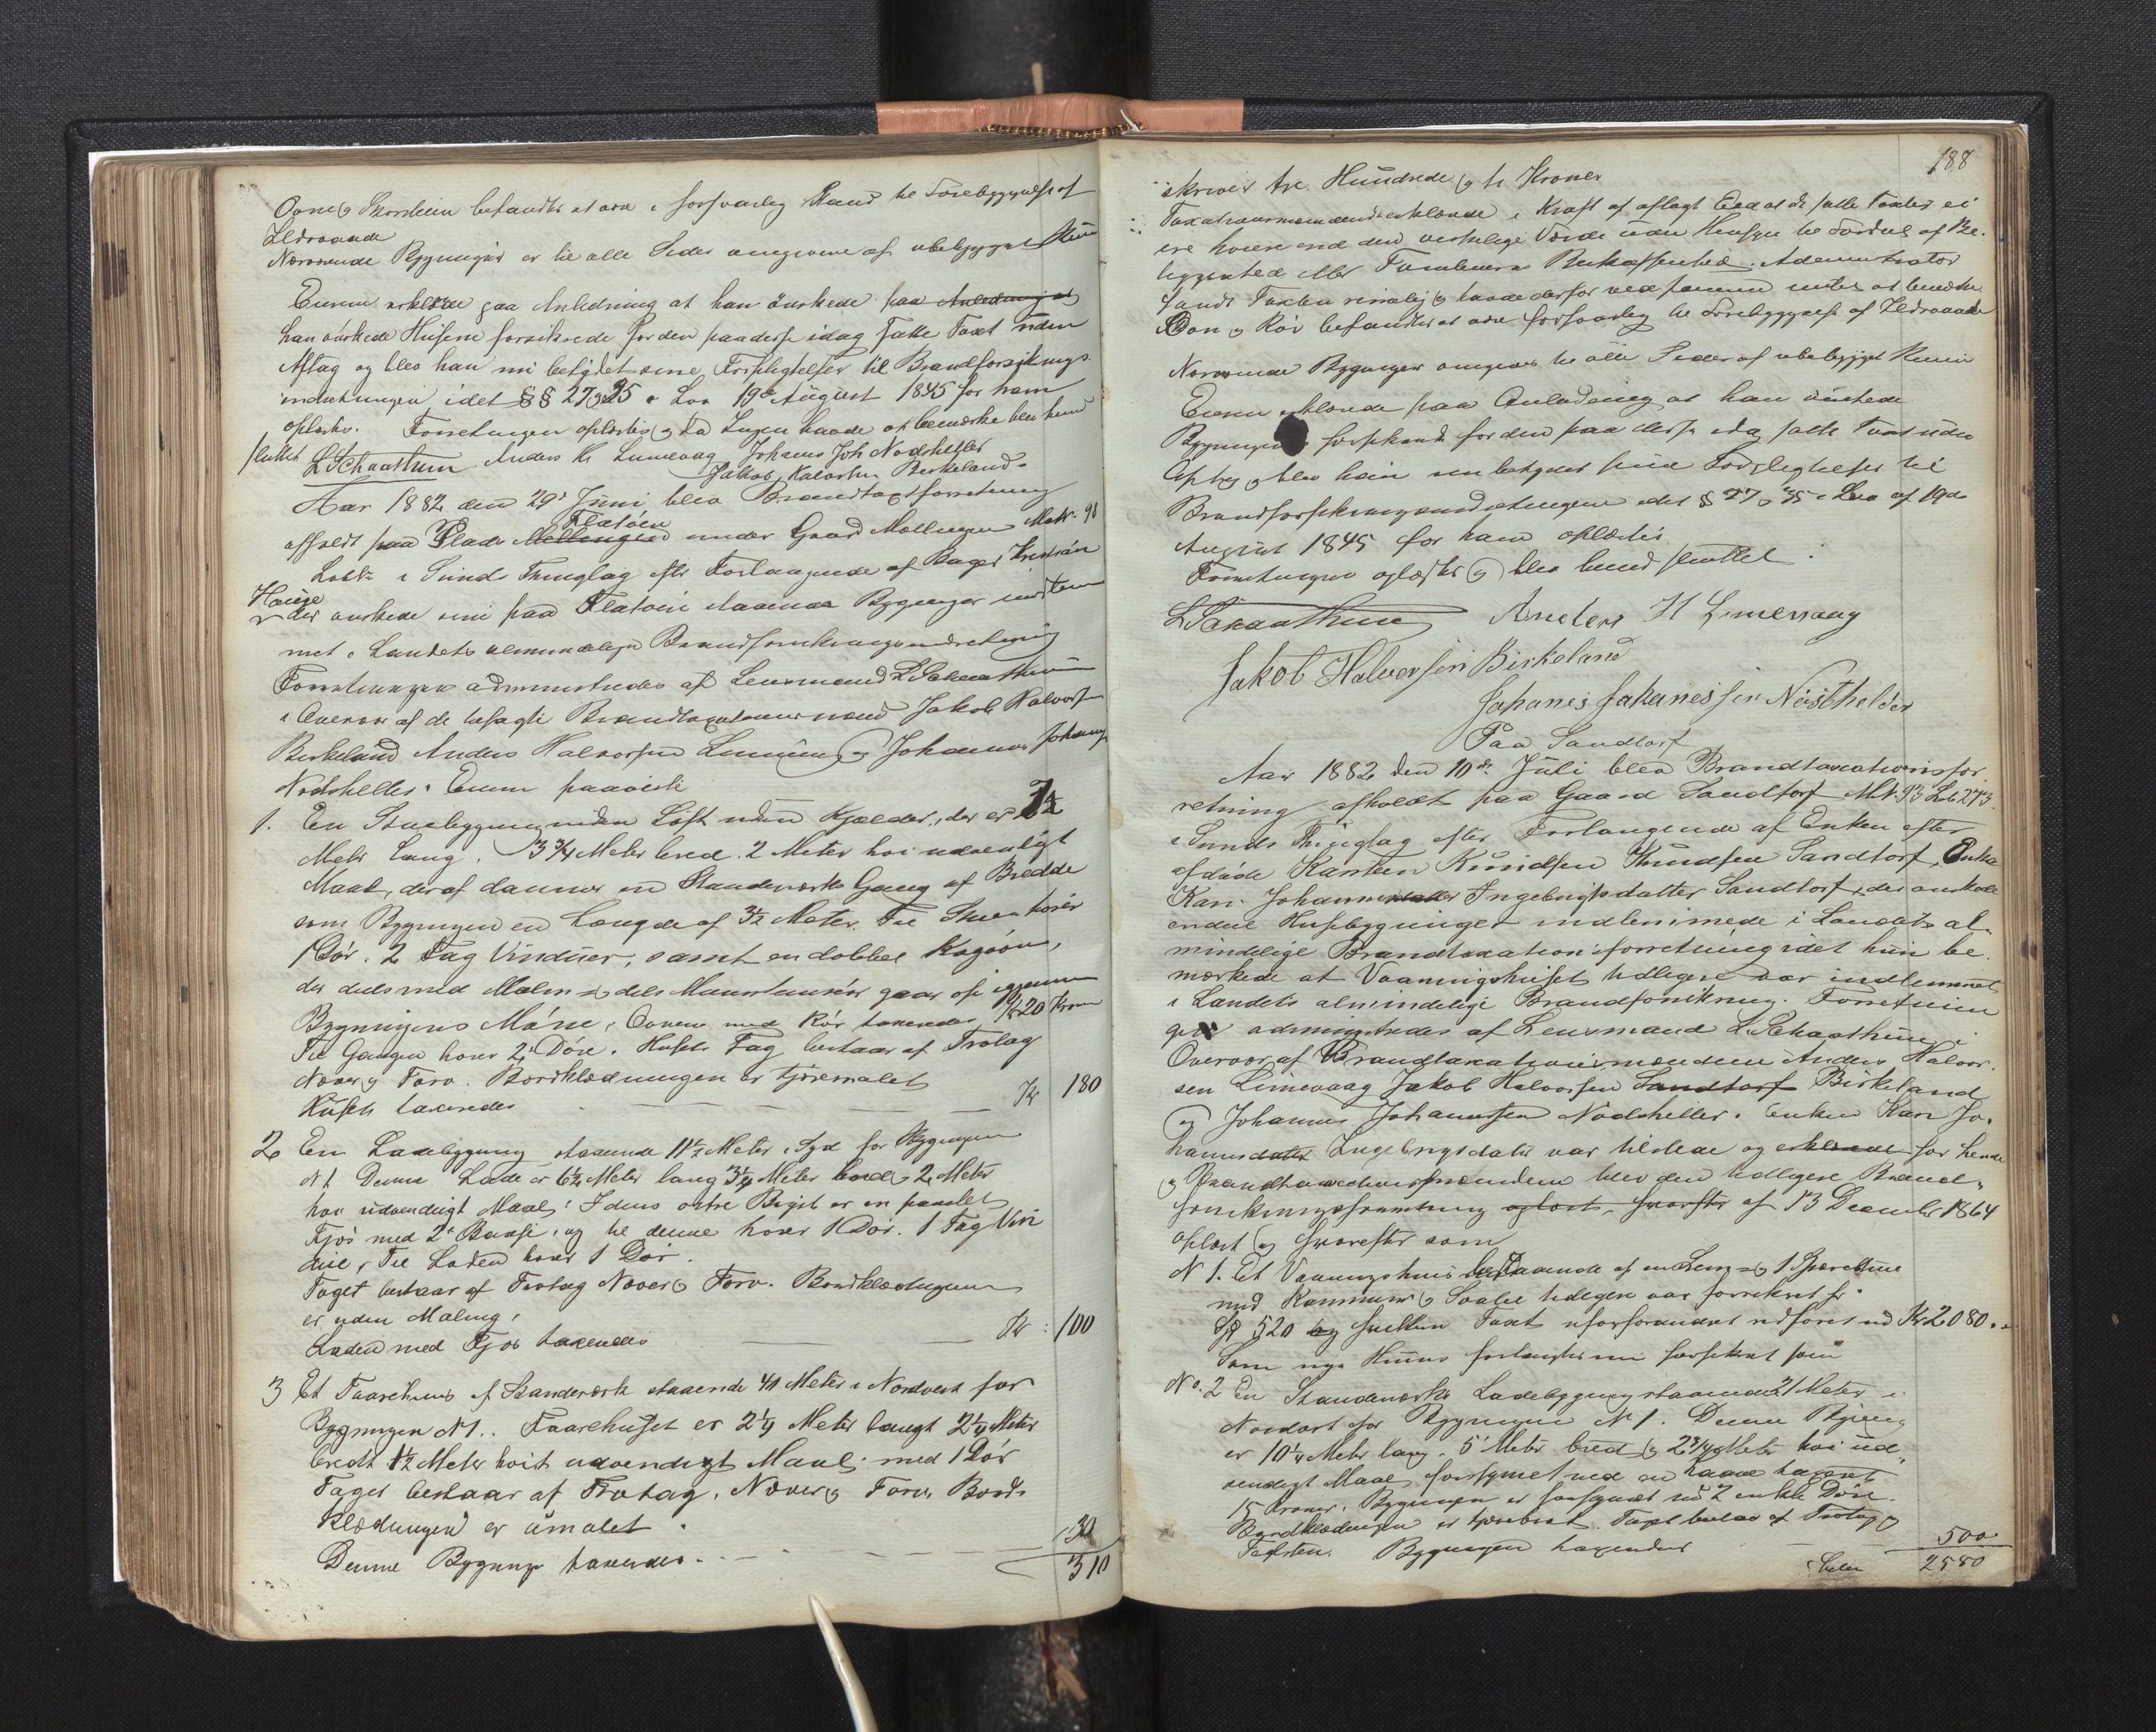 Ovne og Skorsteen befandtes at være i forsvarlig Stand til Forebyggelse af
Ildsvaade
Nærværende Bygninger er til alle Sider omgivne af ubebygget Rum
Eieren erklærede paa Anledning at han önskede paa Anledning at
han önskede Husene forsikrede for den paa disse idag satte Taxt uden
Aftag og blev han nu betydet sine Forpligtelser til Brandforsikrings-
indretningen idet §§ 27 og 35 i Lov 19de August 1845 for ham
oplæstes. Forretningen oplæstes og da Ingen havde at bemærke blev hermed
sluttet
L Schaathun Anders H. Limevaag Johannes Joh Nodsheller
Jakob Halvorsen Birkeland.
Aar 1882 den 29de Juni blev Brandtaxtforretning
Flatöen
afholdt paa Plads Mellingen under Gaard Mællingen Matr. 98
Løbe i Sunds Thinglag efter Forlangende af Bager Kristian
Hauge
der önskede sine paa Flatöen staaende Bygninger indlem
met i Landets almindelige Brandforsikringsindretning
Forretningen administredes af Lensmand L Schaathun
i Overvær af de opsagte Brandtaxationsmænd Jakob Halvorsen
Birkeland Anders Halvorsen Limevaag og Johannes Johannes
Nodsheller. Eieren paaviste
1. En Stuebygning uden Loft uden Kjælder, der er 7½
Meter lang, 3¾ Meter bred 2 Meter höi udvendigt
Maal, deraf danner en Standværks Gang af Bredde
som Bygningen en Længde af 3½ Meter. Til Stuen hörer
1 Dör. 2 Fag Vinduer, samt en dobbel Kogeovn,
der dels med Malm og dels Muurstensrör gaar op igjennem
Bygningens Mönne, Ovnen med Rör taxeredes Kr 20 Kroner
Til Gangen hörer 2 Döre. Husets Tag bestaar af Trotag
Næver og Torv. Bordklædningen er tjæremalet
Huset taxeredes Kr 180
2 En Ladebygning staaende 11½ Meter i Syd for Bygningen
N 1 Denne Lade er 6½ Meter lang 3¼ Meter bred og 2 Meter
höi udvendigt Maal. I dens östre Bygd er en panelet
Fjös med 2 Baase, og til denne hörer 1 Dör. 1 Fag Vin
due, Til Laden hörer 1 Dör.
Taget bestaar af Trotag Næver og Torv. Bordklædningen
er uden Maling,
Laden med Fjös taxeredes Kr: 100
3 Et Faarehuus af Standværk staaende 41 Meter i Nordvest for
Bygningen N 1.. Faarehuset er 2¼ Meter langt 2¼ Meter
bredt 1½ Meter höit udvendigt Maal. med 1 Dör
Taget bestaar af Trotag, Næver og Torv. Bord-
klædningen er umalet.
Denne Bygning taxeredes. 30
310
188
skriver tre Hundrede og ti Kroner
Taxationsmændene erklærede i Kraft af aflagt Eed at de satte Taxter ei
ere höiere end den virkelige Værdi uden Hensyn til Fordeel af Be-
liggenhed eller Tomternes Beskaffenhed. Administrator
fandt Taxten rimelig og havde derfor ved samme intet at bemærke
Ovn og Rör befandtes at være forsvarlig til Forebyggelse af Ildsvaade
Nærværende Bygninger omgives til alle Sider af ubebygget Rum
Eieren erklærede paa Anledning at han önskede
Bygningen forsikrede for den paa disse idag satte Taxt uden
Aftag og blev han nu betydet sine Forpligtelser til
Brandforsikringsindretningen idet § 27 og 35 i Lov af 19de
August 1845 for ham oplæstes
Forretningen oplæstes og blev hermed sluttet.
L Schaathun Anders H Limevaag
Jakob Halversen Birkeland
Johanes Johanessen Nöstheller
Paa Sandtorf
Aar 1882 den 10de Juli blev Brandtaxationsfor-
retning afholdt paa Gaard Sandtorf Mt. 93 Lb 273.
i Sunds Thinglag efter Forlangende af Enken efter
afdöde Karsten Knudsen Knudsen Sandtorf, Enke
Kari Johannesdatter Ingebrigtsdatter Sandtorf, der önskede
endeel Husebygninger indlemmede i Landets al-
mindelige Brandtaxationsforretning idet hun be-
mærkede at Vaaningshuset tidligere var indlemmet
i Landets almindelige Brandforsikring. Forretnin
gen administredes af Lensmand L. Schaathun i
Overvær af Brandtaxationsmændene Anders Halvor-
sen Limevaag Jakob Halvorsen Sandtorf Birkeland
og Johannes Johannesen Nodsheller. Enken Kari Jo-
hannesdatter Ingebrigtsdatter var tilstede og erklærede for hende
og Brandtaxationsmændene blev den tidligere Brand-
forsikringsforretning oplæst, hvorefter af 13 December 1864
oplæst og hvorefter som
N 1. Et Vaaningshuus bestaaende af en Leng og 1 Spærestue
med Kammers og Svale tidligere var forsikret for
Sp 520 og hvilken Taxt uforandret udföres med Kr 2080.
Som nye Huuse forlangtes nu forsikret som
No. 2 En Standværks Ladebygning staaende 21 Meter i
Nordost for Bygningen N 1. Denne Bygning
er 10¼ Meter lang. 5 Meter bred og 2¾ Meter höi ud-
vendigt Maal, forsynet med en Laave taxeret
15 Kroner. Bygningen er forsynet med 2 enkle Döre.
Bordklædningen er tjærebred. Taget bestaar af Trotag og
Tagsten. Bygningen taxeredes 500
2580